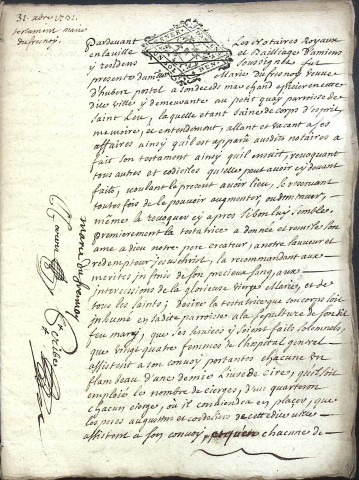 31. xbre 1731.
testament marie
dufresnoy.
Pardevant Les Notaires Royaux
en la ville et Bailliage d'amiens
y residens soussignés fut
presente dam.lle Marie Dufresnoy veuve
d'hubert postel son decede marchand epicier en cette
dite ville y demeurante au petit quay parroisse de
Saint Leu, laquelle etant saine de corps d'esprit,
memoire, et entendement, allant et vacant a ses
affaires ainsy quil est apparu ausdits notaires a
fait son testament ainsy quil ensuit, revoquant
tous autres et codiciles qu'elles peut avoir cy devant
faits, voulant le present avoir lieu, se reservant
toutes fois de le pouvoir augmenter, ou diminuer,
même le revoquer cy après si bon luy semble.
Premierement la testatrice a donnée et remise son
ame a dieu notre pere createur, a notre sauveur et
redempteur jesus christ, la recommandant aux
merites infinis de son precieux sang, aux
intercessions de la glorieuse vierge Marie, et de
tous les saints; desire la testatrice que son corps soit
inhumé en ladite parroisse a la sepulture de son dit
feu mary, que ses services y soient faits solemnels,
que vingt quatre femmes de l'hopital general
assistent a son convoy portantes chacune un
flambeau d'une demie Livre de cire, quil soit
emploié le nombre de cierges, d'un quarteron
chacun cierge, ou il conviendra en placer, que
les peres augustins et cordeliers de cette dite ville
assistent a son convoy, chacune de
marie du fresnoy